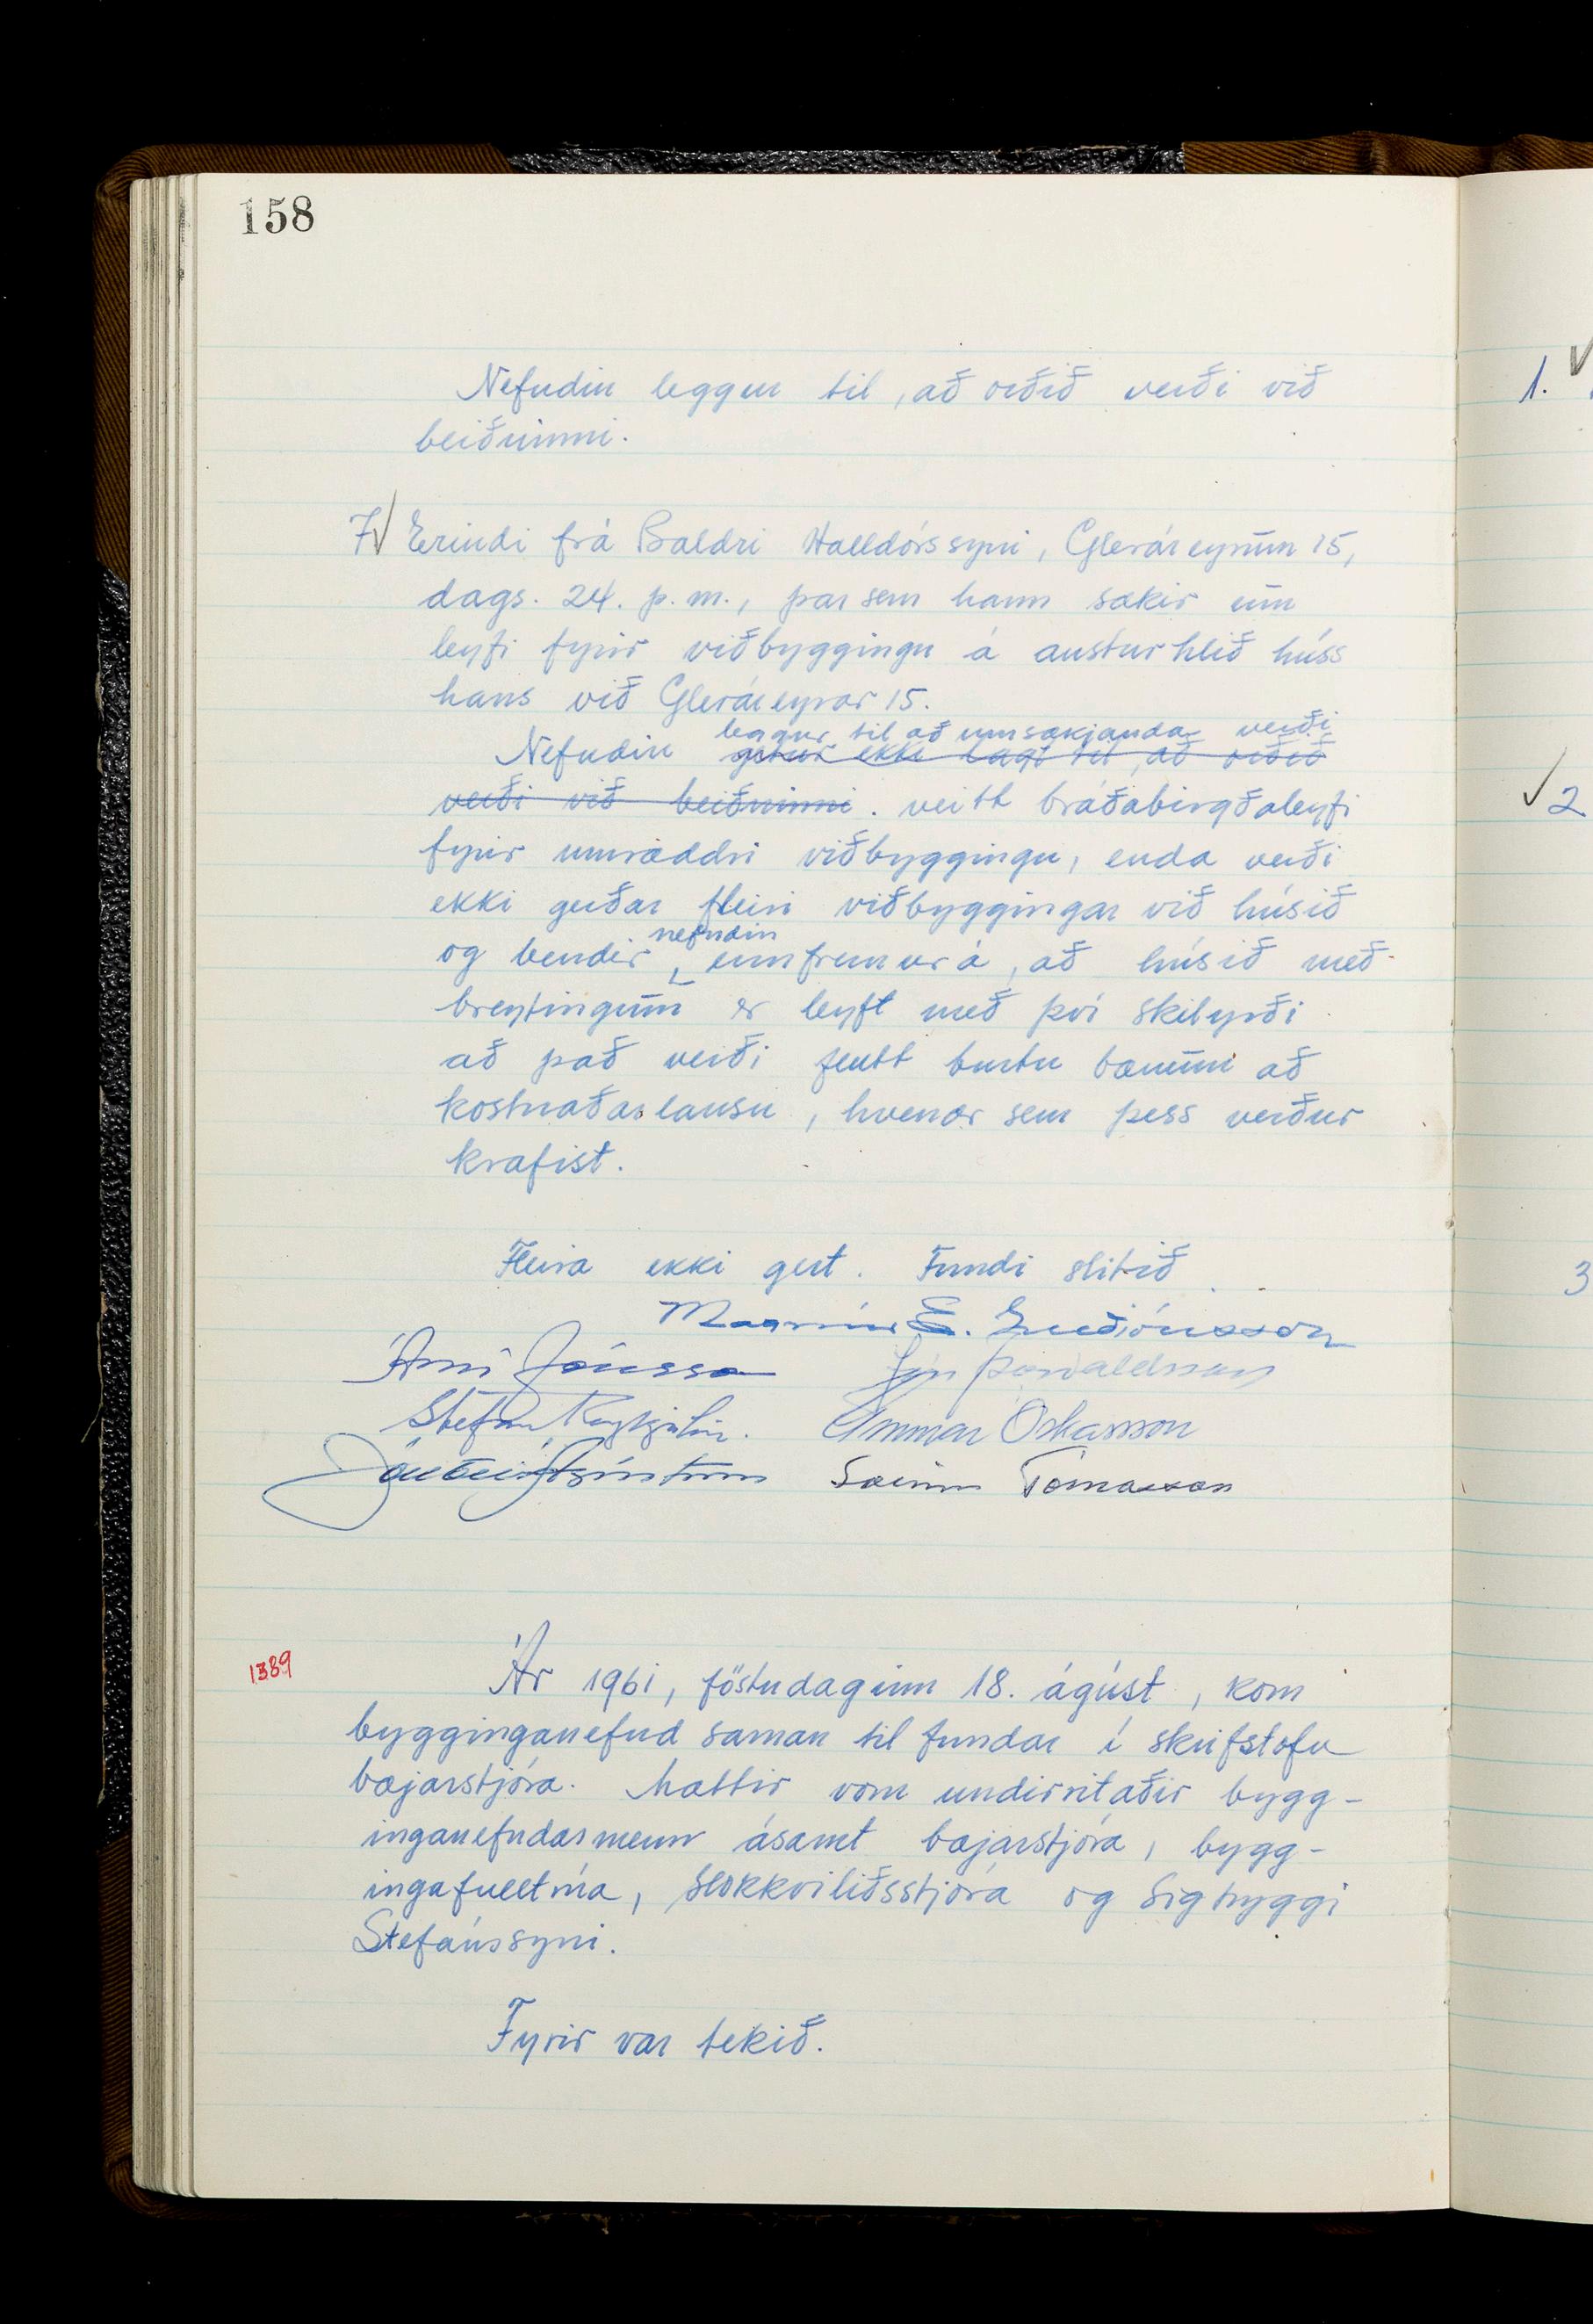 158
Nefndin leggur til, að orðið verði við
beiðninni.
7. Erindi frá Baldri Halldórssyni, Gleráreyrum 15,
dags. 24. þ.m., þar sem hann sækir um
leyfi fyrir viðbyggingu á austurhlið húss
hans við Gleráreyrar 15.
leggur til að umsækjanda verði
Nefndin getur ekki lagt til, að orðið
verði við beiðninni. veitt bráðabirgðaleyfi
fyrir umræddri viðbyggingu, enda verði
ekki gerðar fleiri viðbyggingar við húsið
nefndin
og bendir ennfremur á, að húsið með
breytingum er leyft með því skilyrði
að það verði flutt burtu bænum að
kostnaðarlausu, hvenær sem þess verður
krafist.
Fleira ekki gert. Fundi slitið
Magnús E. Guðjónsson
Árni Jónsson Jón Þorvaldsson
Stefán Reykjalín. Gunnar Óskarsson
Sveinn Tómasson
1389
Ár 1961, föstudaginn 18. ágúst, kom
bygginganefnd saman til fundar í skrifstofu
bæjarstjóra. Mættir voru undirritaðir bygg-
inganefndarmenn ásamt bæjarstjóra, bygg-
ingafulltrúa, slökkviliðsstjóra og Sigtryggi
Stefánssyni.
Fyrir var tekið.
1.
2
3